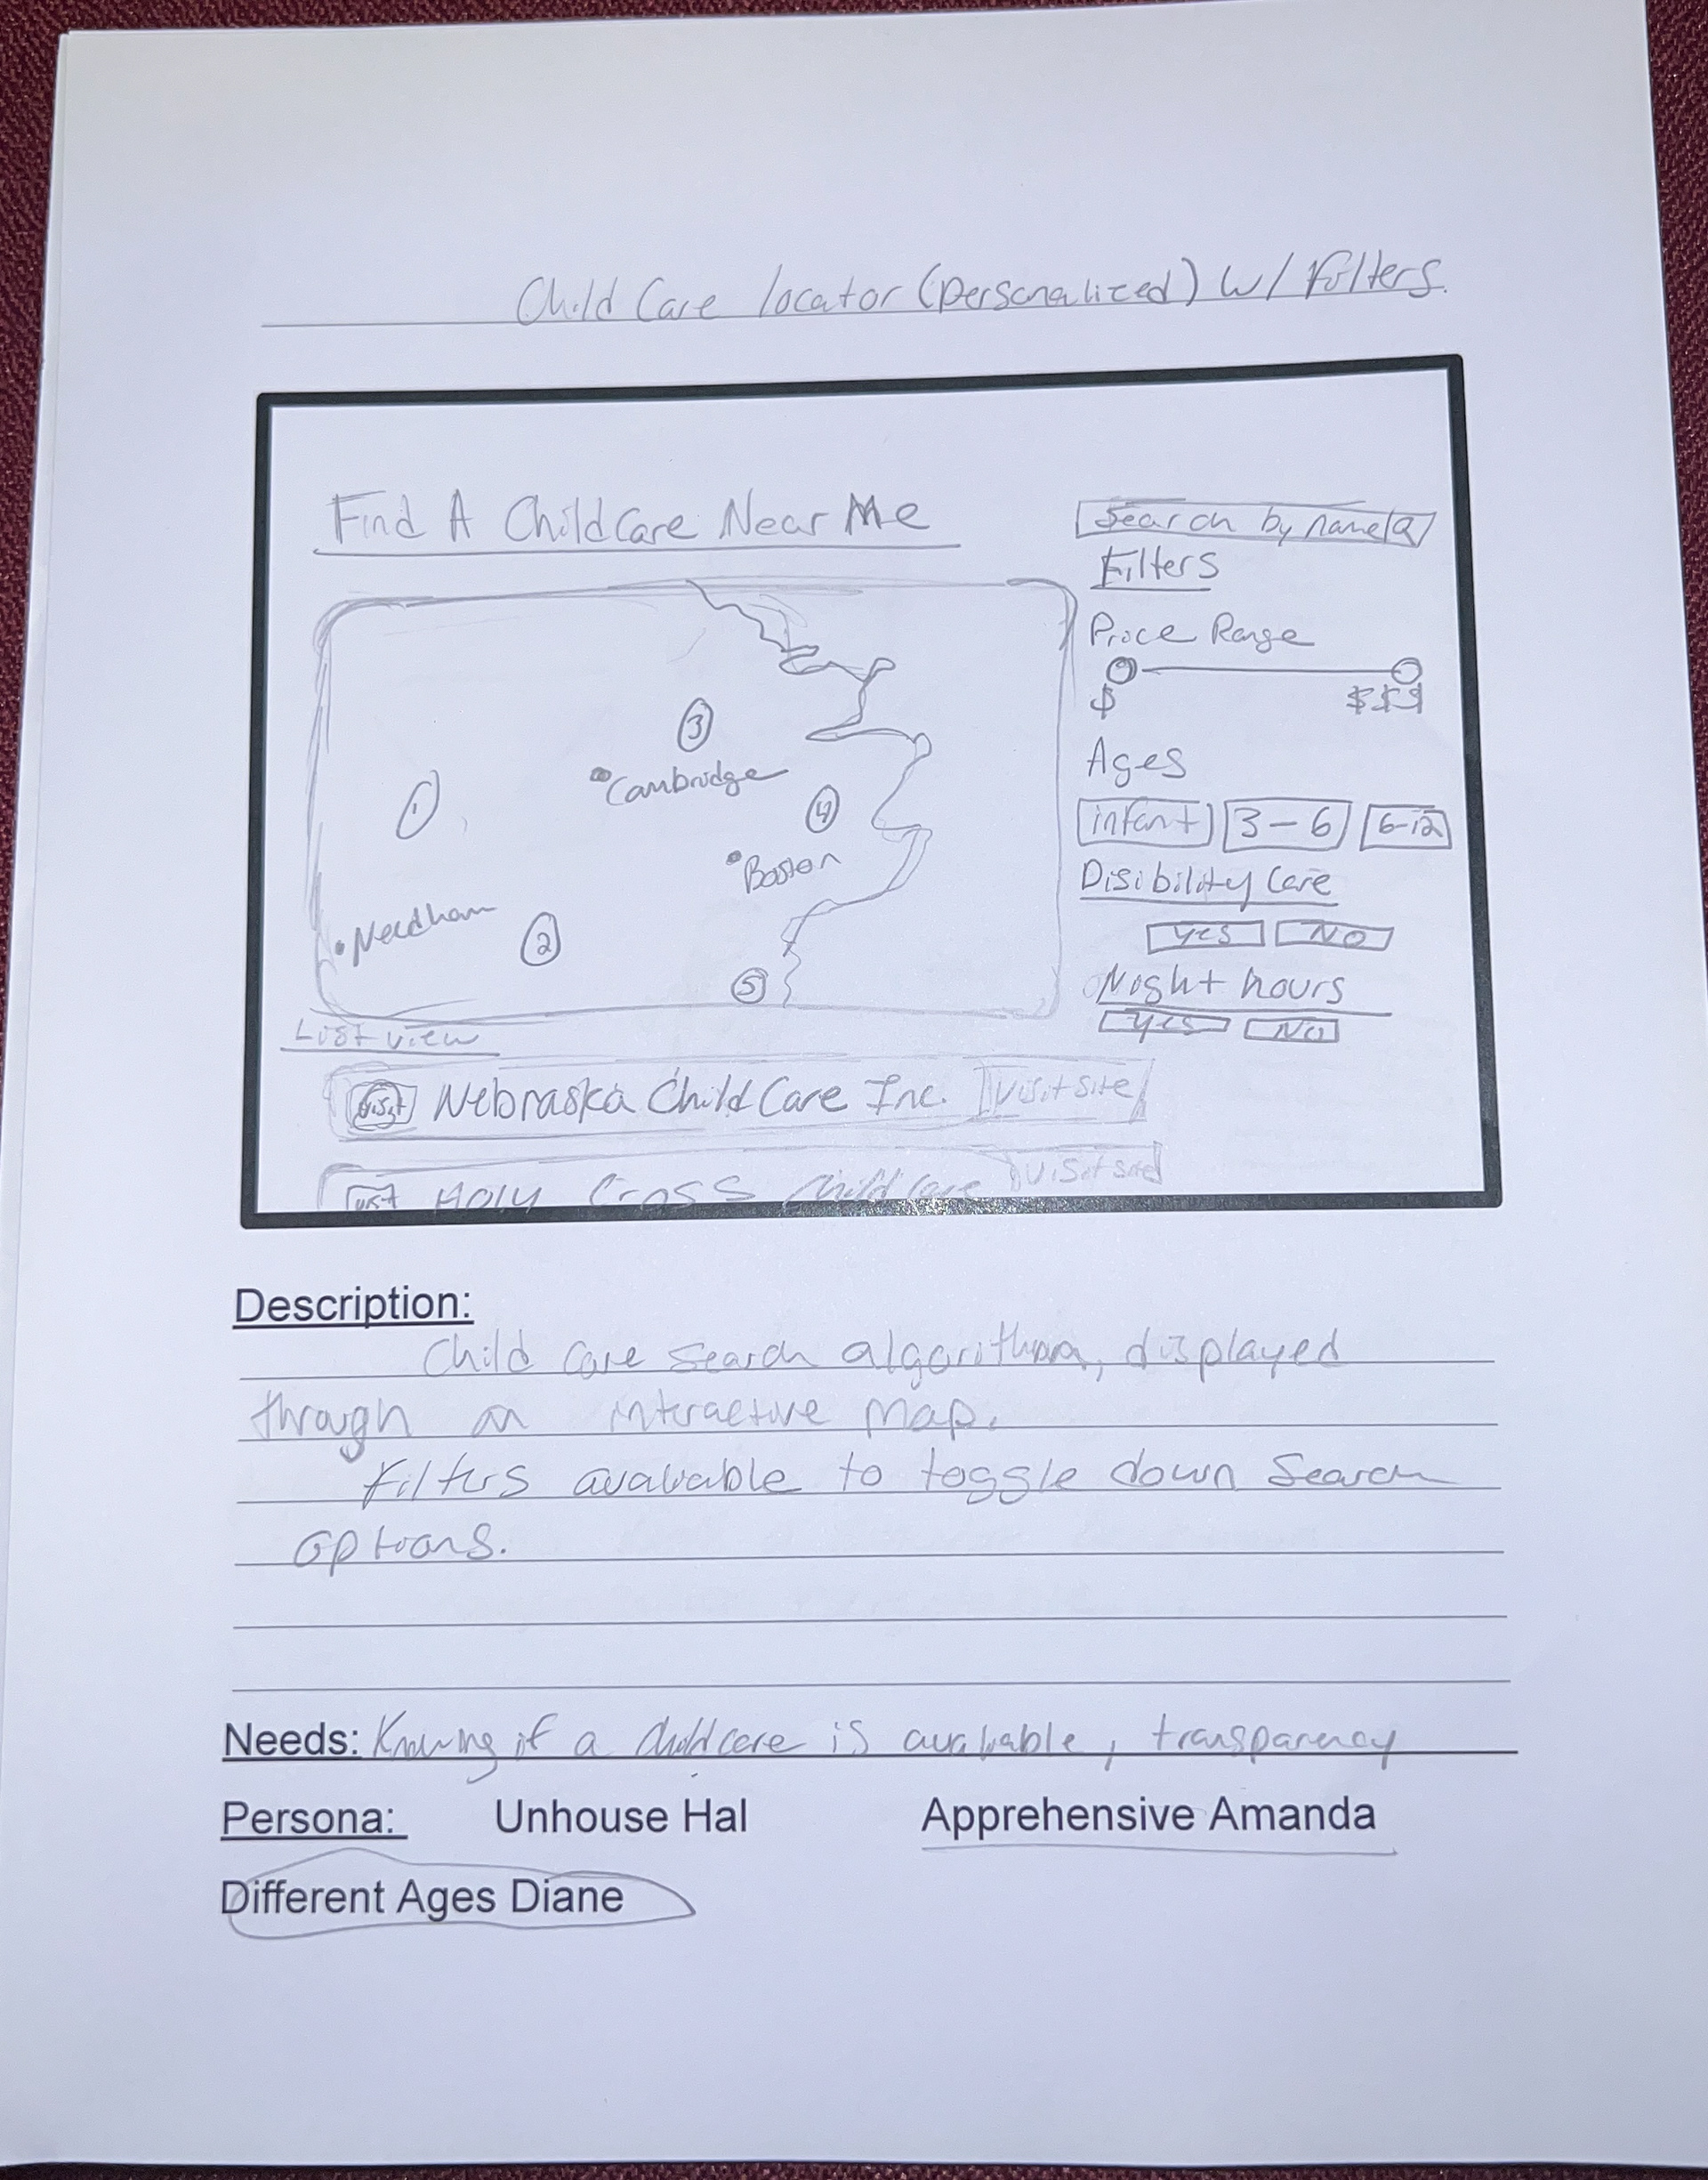 Child Care locator (personalized) w/ Filters.
Find A ChildCare Near Me
Search by name
Filters
Price Range
$ $$$
Ages
infant 3-6 6-12
Disibility Care
Yes No
Night hours
Yes No
3
Cambridge
1
4
Boston
Needham
2
5
List view
Nebraska ChildCare Inc. Visit site
Holy Cross Child Care Visit site
Description:
Child care search algorithm, displayed
through an interactive map.
Filters avaliable to toggle down search
options.
Needs: Knowing if a childcare is avaliable, transparency
Persona: Unhouse Hal Apprehensive Amanda
Different Ages Diane